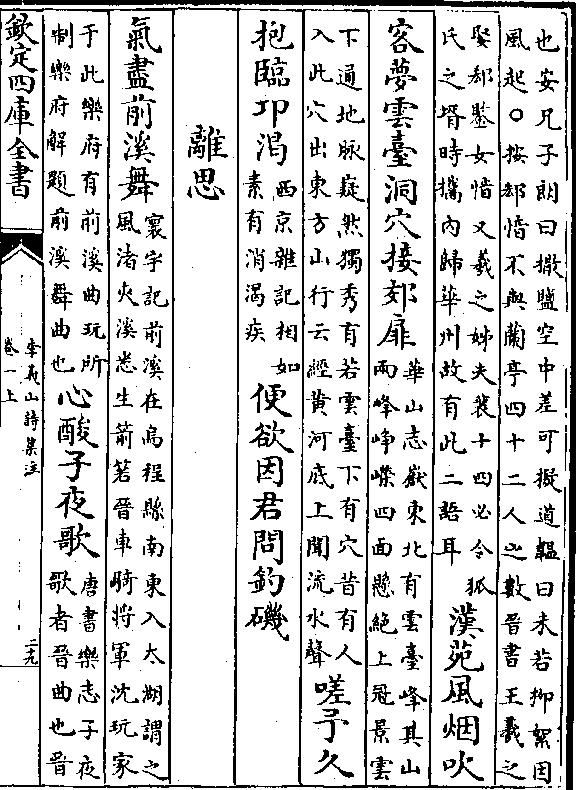 也安兄子朗曰撒鹽空中差可擬道韞曰未若柳絮因
風起○按郄愔不與蘭亭四十二人之數晉書王羲之
娶郄鑒女愔又羲之姊夫裴十四必令狐
氏之壻時攜內歸華州故有此二語耳
漢苑風烟吹
客夢雲臺洞穴接郊扉
華山志嶽東北有雲臺峰其山
兩峰崢嶸四面懸絕上冠景雲
下通地脉嶷然獨秀有若雲臺下有穴昔有人
入此穴出東方山行云經黃河底上聞流水聲
嗟予久
抱臨卭渴
西京雜記相如
素有消渴疾
便欲因君問釣磯
離思
氣盡前溪舞
寰宇記前溪在烏程縣南東入太湖謂之
風渚夾溪悉生箭箬晉車騎將軍沈玩家
于此樂府有前溪曲玩所
制樂府解題前溪舞曲也
心酸子夜歌
唐書樂志子夜
歌者晉曲也晉
欽定四庫全書
李義山詩集注
卷一上
二九